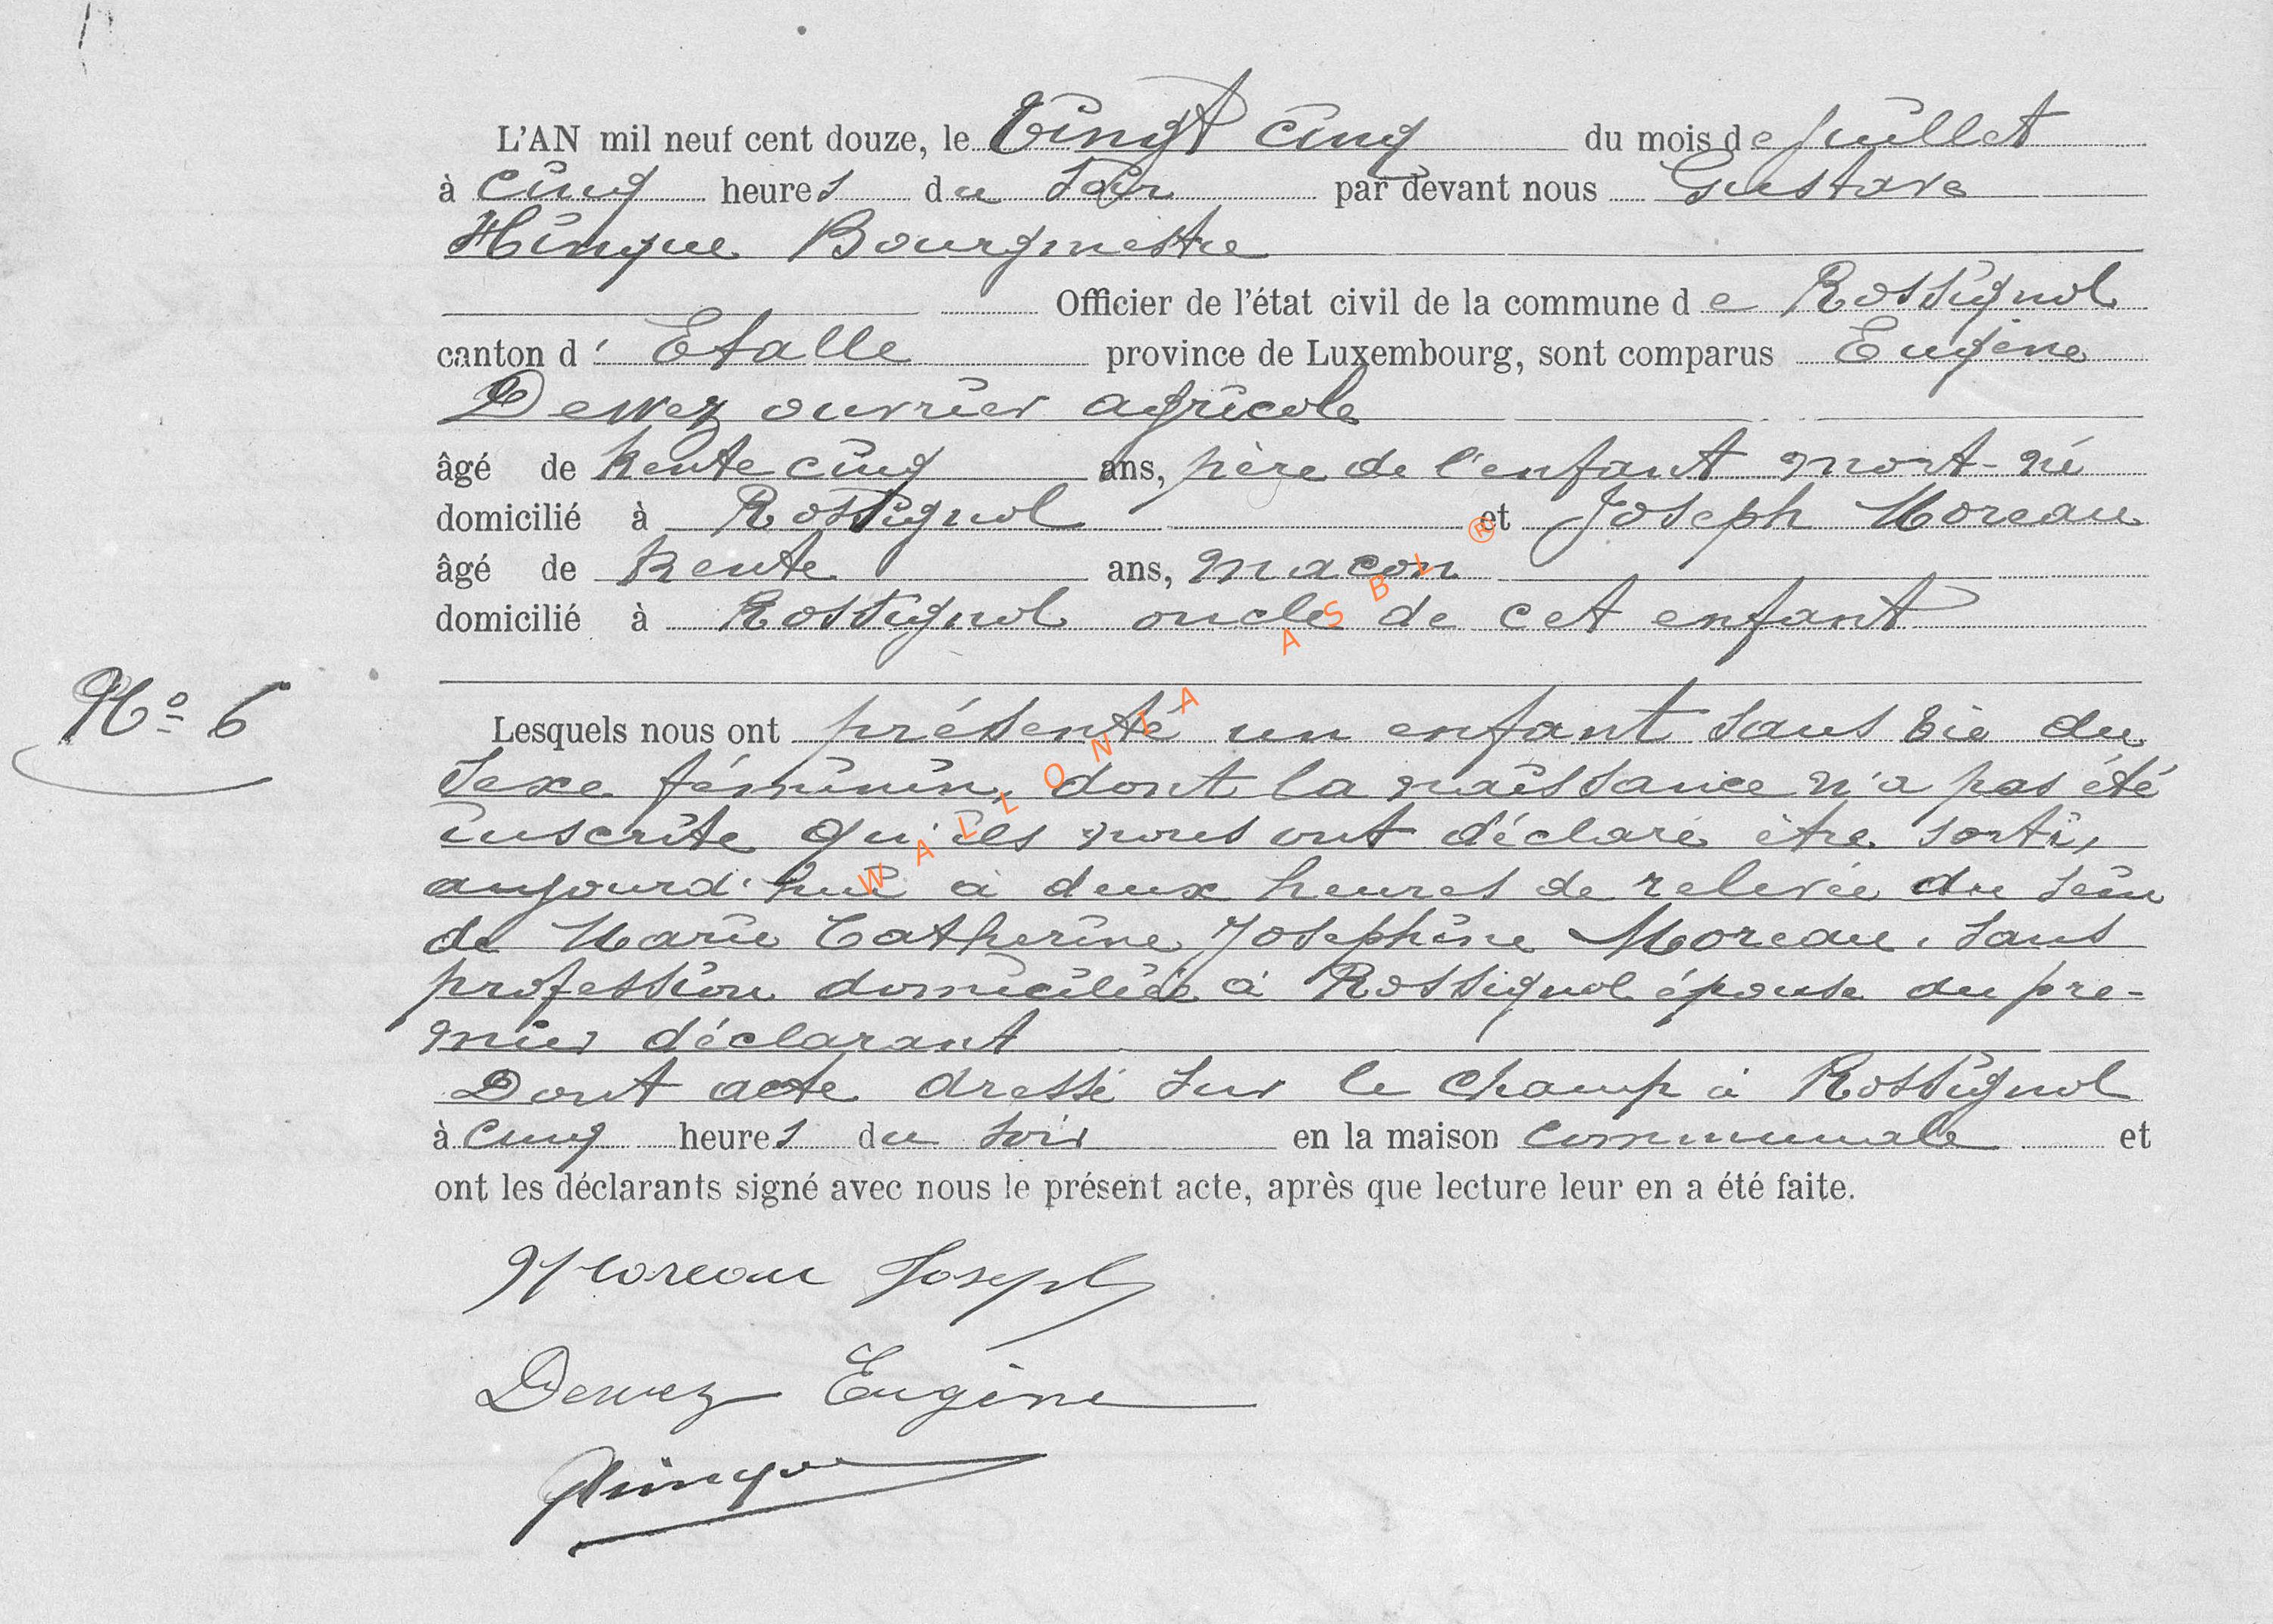 L'AN mil neuf cent douze, le Vingt cinq du mois de Juillet
à cinq heures du soir par devant nous Gustave
Hinque Bourgmestre
Officier de l'état civil de la commune de Rossignol
canton d' Etalle province de Luxembourg, sont comparus Eugène
Dewez ouvrier agricole
âgé de trente cinq ans, père de l'enfant mort-né
domicilié à Rossignol et Joseph Moreau
âgé de trente ans, macon
domicilié à Rossignol oncle de cet enfant
No 6
Lesquels nous ont présenté un enfant sans vie du
sexe féminin, dont la naissance n'a pas été
inscrite qu'ils nous ont déclaré être sorti,
aujourd'hui à deux heures de relevée du sein
de Marie Catherine Joséphine Moreau, sans
profession domiciliée à Rossignol épouse du pre-
mier déclarant
Dont acte dressé sur le champ à Rossignol
à cinq heures du soir en la maison communale et
ont les déclarants signé avec nous le présent acte, après que lecture leur en a été faite.
Moreau Joseph
Dewez Eugène
Hinque
WALLONIA ASBL ®